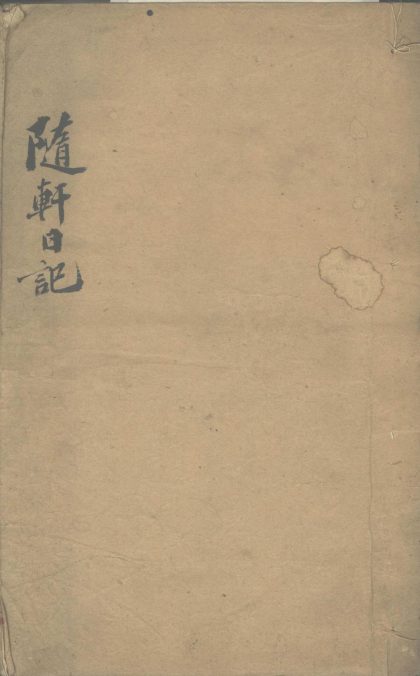 隨軒日記